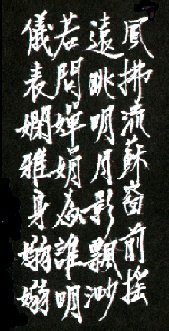 風拂流蘇窗前搖
遠眺明月影飄渺
若問嬋娟為誰明
儀表嫻雅身嫋嫋